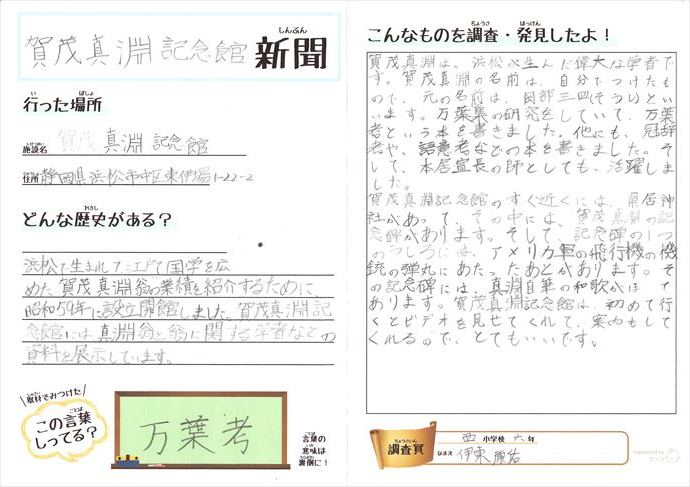 賀茂真淵記念館
しんぶん
新聞
い ばしょ
行った場所
しせつめい
施設名 賀茂真淵記念館
住所 静岡県浜松市中区東伊場1-22-2
れきし
どんな歴史がある？
浜松で生まれて、江戸で国学を広
めた賀茂真淵翁の業績を紹介するために、
昭和59年に設立開館しました。賀茂真淵記
念館には真淵翁と翁に関する学者などの
資料を展示しています。
取材でみつけた
ことば
この言葉
しってる？
万葉考
言葉の
意味は
裏側に！
ちょうさ はっけん
こんなものを調査・発見したよ！
賀茂真淵は、浜松が生んだ偉大な学者で
す。賀茂真淵の名前は、自分でつけたも
ので、元の名前は、岡部三四(そうし)とい
います。万葉集の研究をしていて、万葉
考という本を書きました。他にも、冠辞
考や、語意考などの本を書きました。そ
して、本居宣長の師としても、活躍しま
した。
賀茂真淵記念館のすぐ近くには、県居神
社があって、その中には、賀茂真淵の記
念碑があります。そして、記念碑の1つ
のうしろには、アメリカ軍の飛行機の機
銃の弾丸にあたったあとがあります。そ
の記念碑には、真淵自筆の和歌がほって
あります。賀茂真淵記念館は、初めて行
くとビデオを見せてくれて、案内もして
くれるので、とてもいいです。
ちょうさいん
調査員
西 小学校 六年
なまえ 伊東
supported by